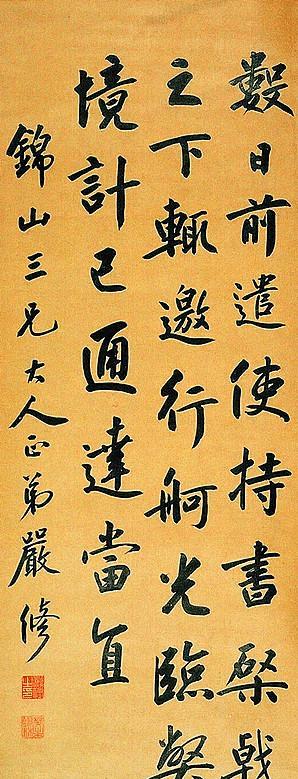 數日前遣使持書棨戟
之下輒邀行舸光臨弊
境計已通達當直
錦山三兄大人正弟嚴修